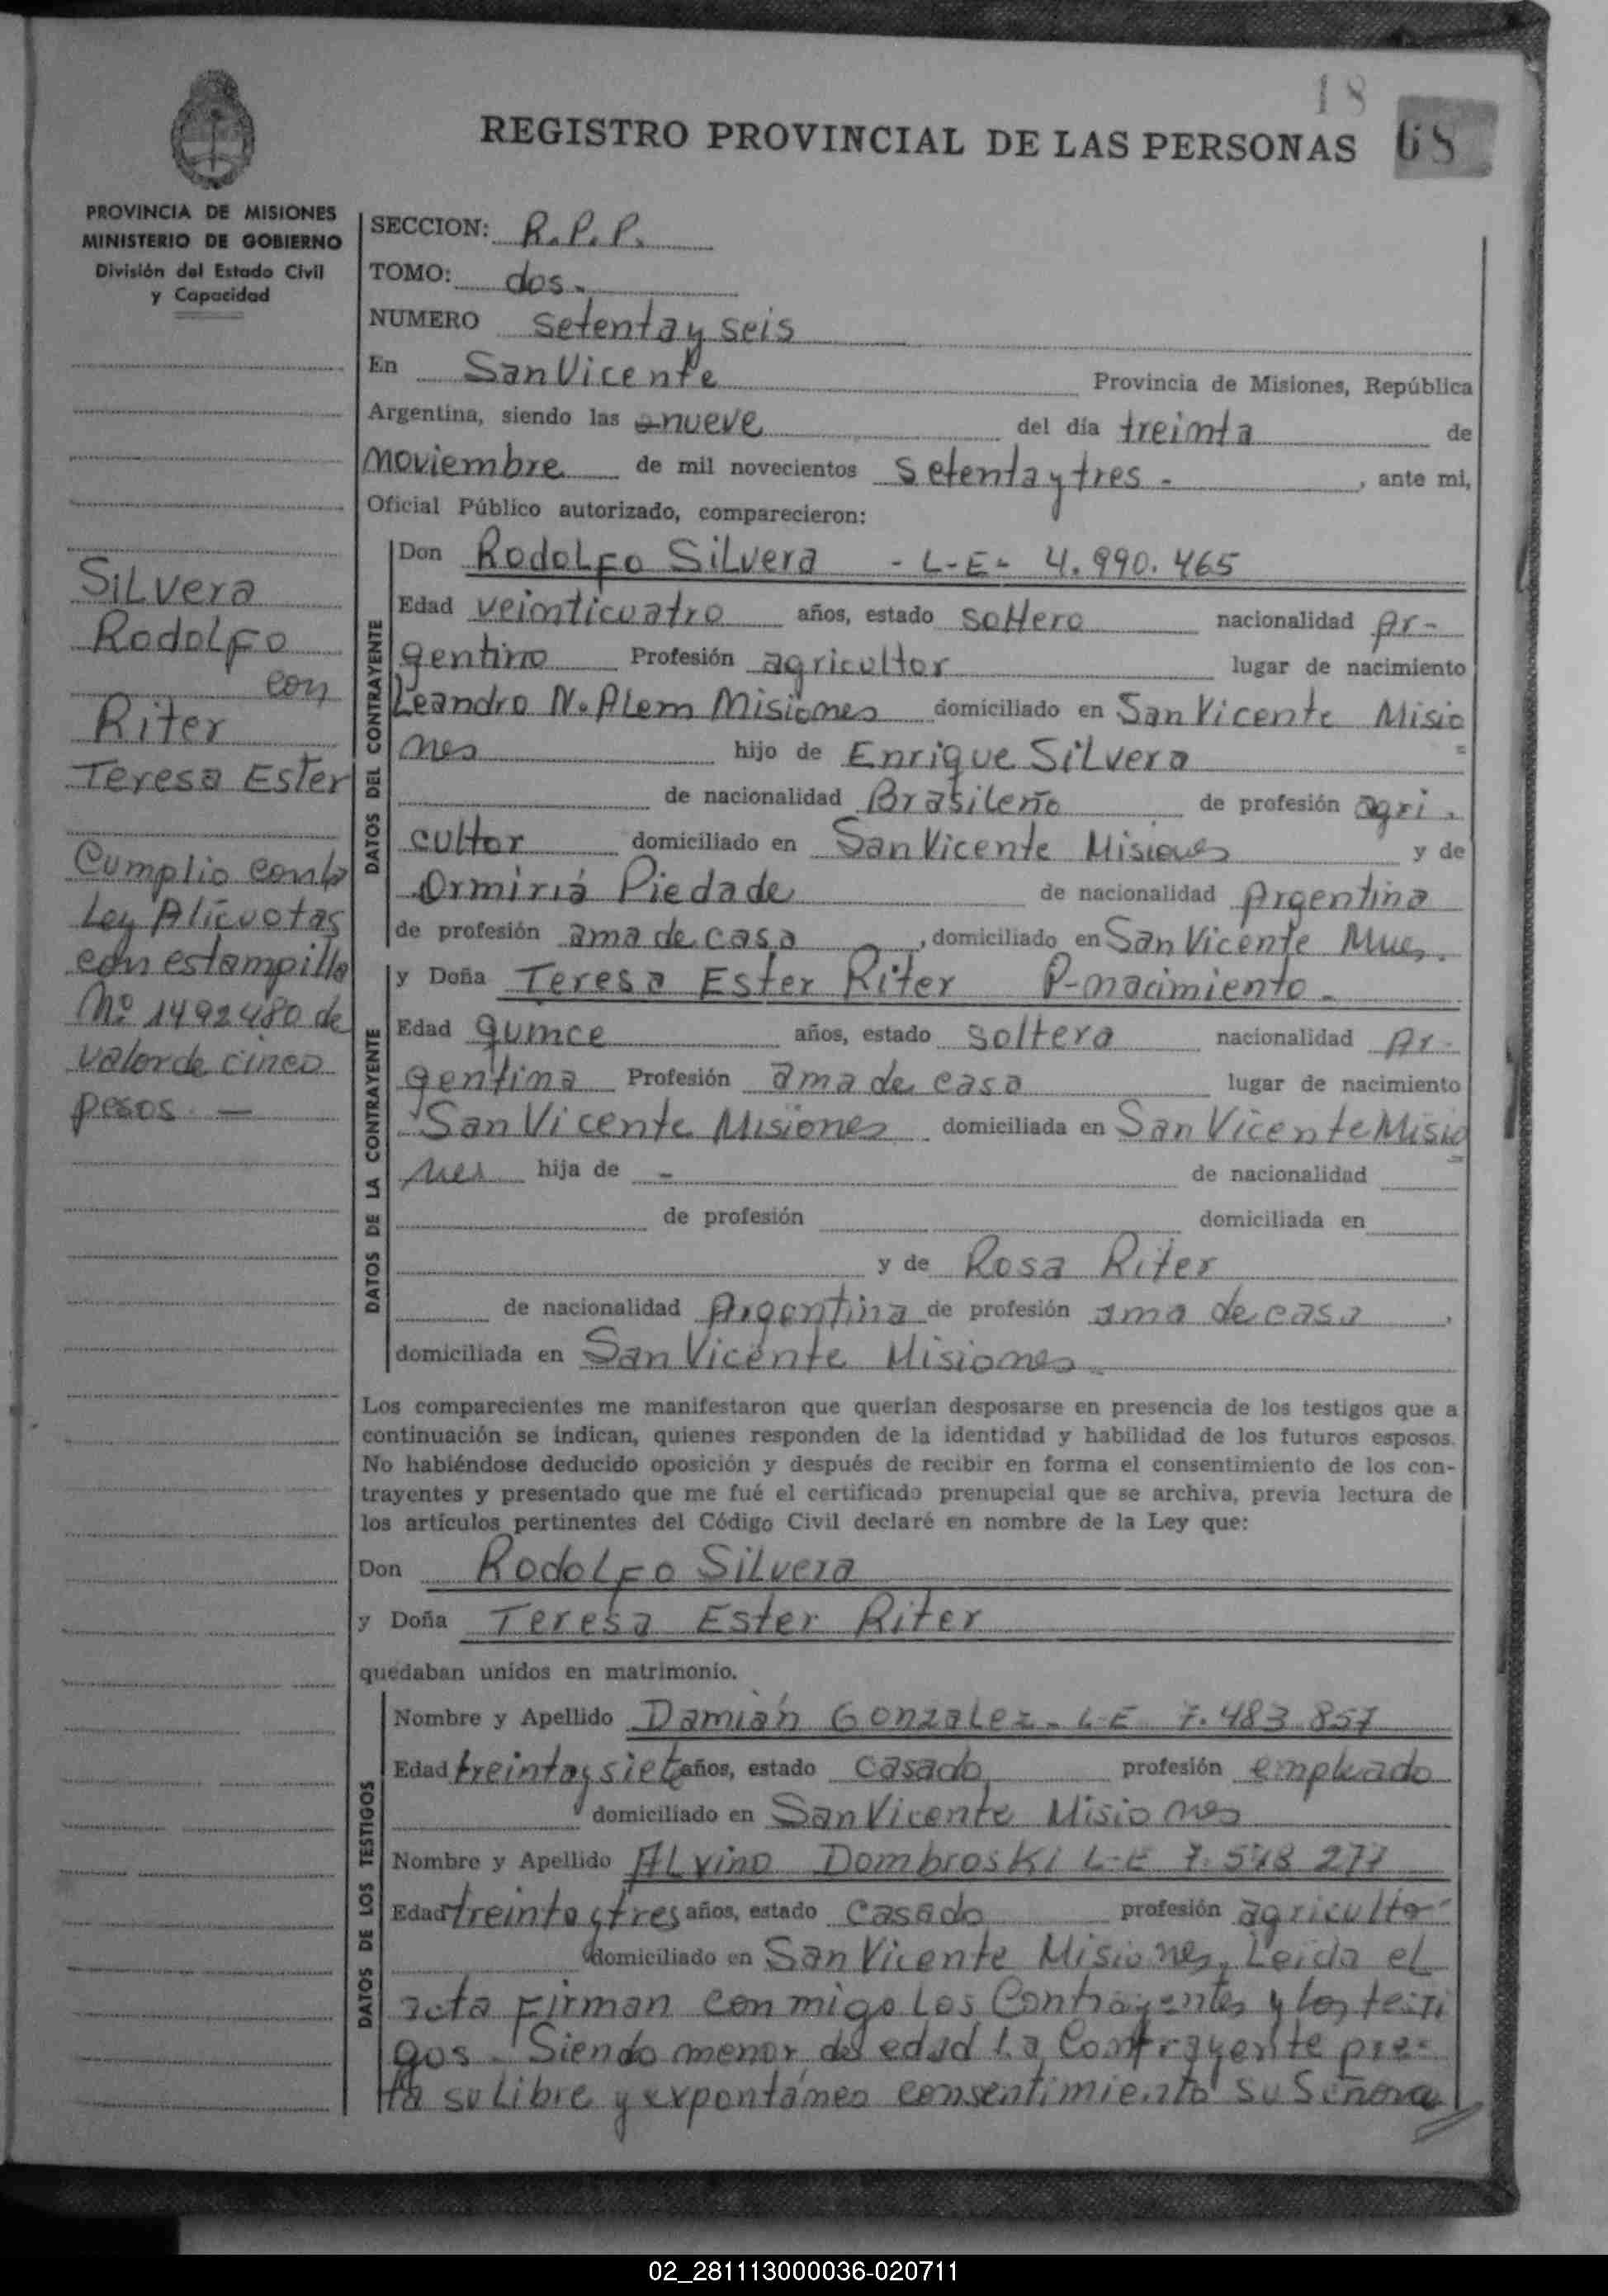 18
REGISTRO PROVINCIAL DE LAS PERSONAS 68
PROVINCIA DE MISIONES
MINISTERIO DE GOBIERNO
División del Estado Civil
y Capacidad
SECCION: R.P.P.
TOMO: dos.
NUMERO setenta y seis
En San Vicente Provincia de Misiones, República
Argentina, siendo las nueve del día treinta de
noviembre de mil novecientos setenta y tres - , ante mi,
Oficial Público autorizado, comparecieron:
SiLvera
Rodolfo
con
Riter
Teresa Ester
Cumplio con la
Ley Alicuotas
con estampilla
Nº 1492480 de
valor de cinco
pesos. —
DATOS DEL CONTRAYENTE
Don Rodolfo Silvera - L-E- 4.990.465
Edad veinticuatro años, estado soltero nacionalidad Ar-
gentino Profesión agricultor lugar de nacimiento
Leandro N. Alem Misiones domiciliado en San Vicente Misio
nes hijo de Enrique Silvera
de nacionalidad Brasileño de profesión agri.
cultor domiciliado en San Vicente Misiones y de
Ormiriá Piedade de nacionalidad Argentina
de profesión ama de casa , domiciliado en San Vicente
DATOS DE LA CONTRAYENTE
y Doña Teresa Ester Riter P-nacimiento-
Edad quince años, estado soltera nacionalidad Ar-
gentina Profesión ama de casa lugar de nacimiento
San Vicente Misiones domiciliada en San Vicente Misio
nes hija de - de nacionalidad
de profesión domiciliada en
y de Rosa Riter
de nacionalidad Argentina de profesión ama de casa ,
domiciliada en San Vicente Misiones
Los comparecientes me manifestaron que querían desposarse en presencia de los testigos que a
continuación se indican, quienes responden de la identidad y habilidad de los futuros esposos.
No habiéndose deducido oposición y después de recibir en forma el consentimiento de los con-
trayentes y presentado que me fué el certificado prenupcial que se archiva, previa lectura de
los artículos pertinentes del Código Civil declaré en nombre de la Ley que:
Don Rodolfo Silvera
y Doña Teresa Ester Riter
quedaban unidos en matrimonio.
DATOS DE LOS TESTIGOS
Nombre y Apellido Damián Gonzalez - L-E 7.483.857
Edad treinta y siete años, estado casado profesión empleado
domiciliado en San Vicente Misiones
Nombre y Apellido Alvino Dombroski L-E 7.548 277
Edad treinta y tres años, estado casado profesión agricultor
domiciliado en San Vicente Misiones. Leida el
acta firman conmigo los Contrayentes y los testi
gos. Siendo menor de edad la Contrayente pres-
ta su libre y expontáneo consentimiento su Señora
02_281113000036-020711